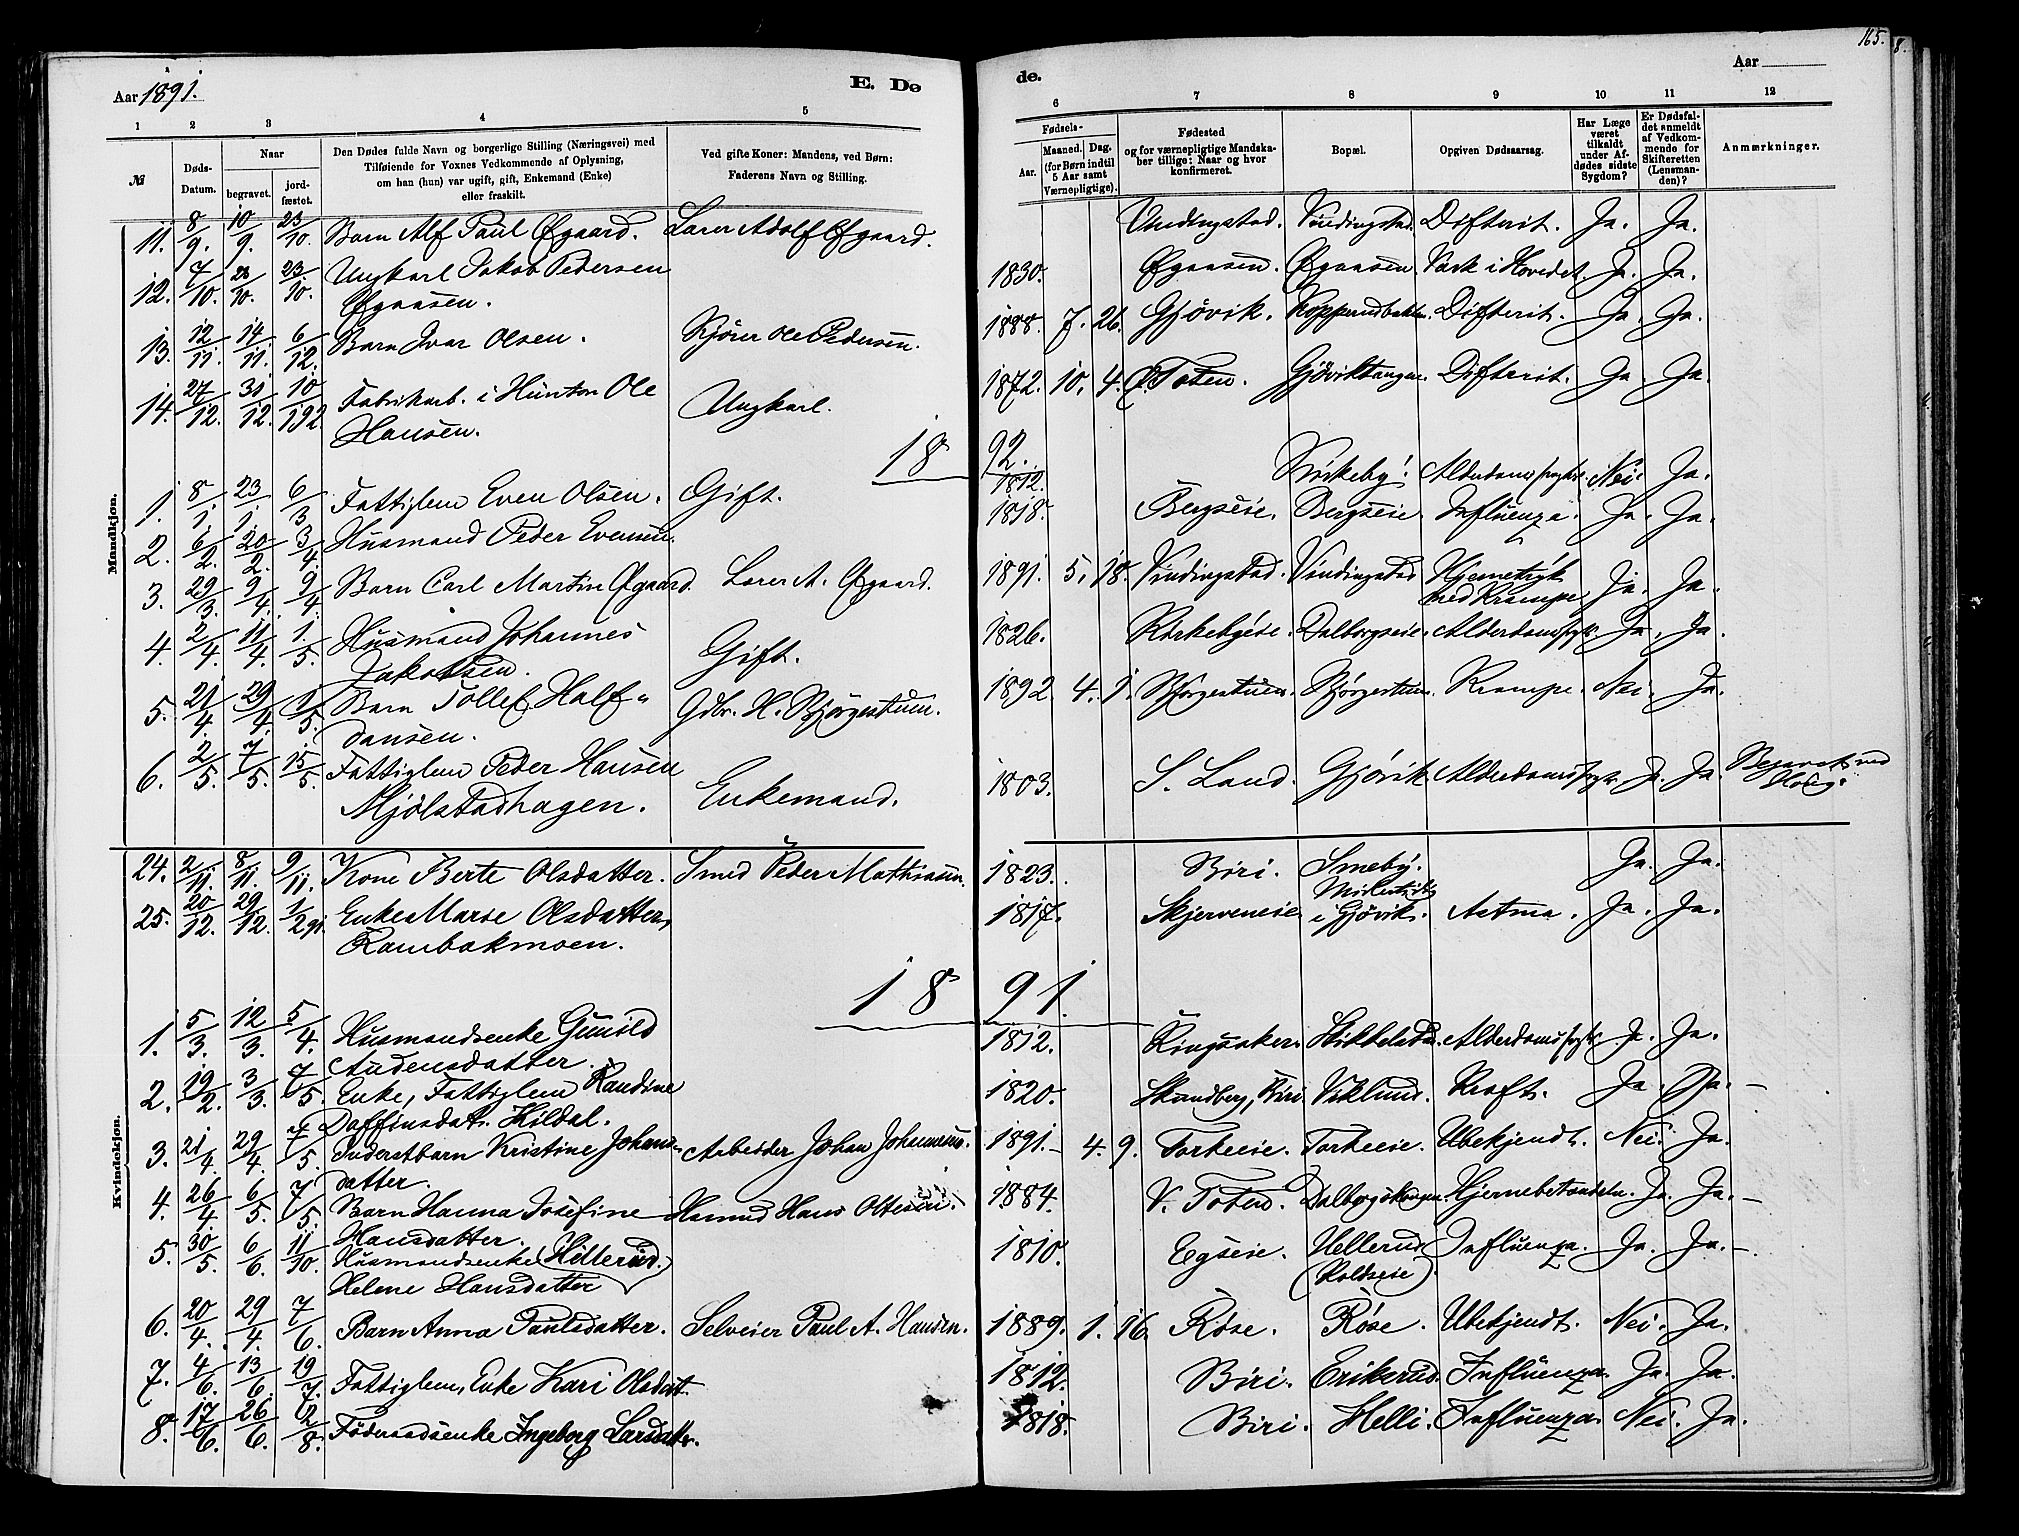 165. 8.
Aar 1891. E. Dø
de. Aar
1 2 3 4 5
6 7 8 9 10 11 12
№ Døds-Datum. Naar begravet. jordfæstet. Den Dødes fulde Navn og borgerlige Stilling (Næringsvei) med Tilføiende for Voxnes Vedkommende af Oplysning, om han (hun) var ugift, gift, Enkemand (Enke) eller fraskilt. Ved gifte Koner: Mandens, ved Børn: Faderens Navn og Stilling.
Fødsels- Aar. Maaned. Dag. (for Børn indtil 5 Aar samt Værnepligtige). Fødested og for værnepligtige Mandskaber tillige: Naar og hvor konfirmeret. Bopæl. Opgiven Dødsaarsag. Har Læge været tilkaldt under Afdødes sidste Sygdom? Er Dødsfaldet anmeldt af Vedkommende for Skifteretten (Lensmanden)? Anmærkninger.
Mandkjøn.
11. 8/9. 10/9. 23/10. Barn Alf Paul Øfgaard. Lærer Adolf Øfgaard. Vindingstad. Vindingstad. Difterit. Ja. Ja.
12. 7/10. 23/10. 23/10. Ungkarl Jakob Pedersen 1830. Øfgaasen. Øfgaasen. Værk i Hovedet. Ja. Ja.
Øfgaasen.
13. 12/11. 14/11. 6/12. Barn Ivar Olsen. Kjører Ole Pedersen. 1888. 7. 26. Gjøvik. Kopperudbakken. Difterit. Ja. Ja.
14. 27/12. 31/12. 10/1 92. Fabrikarb. i Hunton Ole Ungkarl. 1872. 10. 4. Ø. Toten. Gjøviktangen. Difterit. Ja. Ja.
Hansen.
1892.
1. 8/1. 23/1. 6/3 Fattiglem Even Olsen. Gift. 1812. Kirkeby. Alderdomssygd. Nei. Ja.
2. 6/2. 20/2. 3/4. Husmand Peder Evensen. 1818. Bergseie. Bergseie. Influenza. Ja. Ja.
3. 29/3. 9/4. 9/4. Barn Carl Martin Øfgaard. Lærer A. Øfgaard. 1891. 5. 18. Vindingstad. Vindingstad Hjernetryk
med Krampe. Ja. Ja.
4. 2/4. 11/4. 1/5. Husmand Johannes Gift. 1826. Kirkebyeie. Dalborgseie. Alderdomssygd. Ja. Ja.
Jakobsen.
5. 21/4. 29/4. 1/5. Barn Tollef Half- Gdbr. H. Bjørgestuen. 1892 4. 1. Bjørgestuen. Bjørgestuen. Krampe. Nei. Ja.
dansen.
6. 2/5. 7/5. 15/5. Fattiglem Peder Hansen Enkemand. 1803. S. Land. Gjøvik. Alderdomssygd. Ja. Ja Begravet ved
Mjølstadhagen. Hunn.
Kvindekjøn.
24. 2/11. 8/11. 9/11. Kone Berte Olsdatter. Smed Peder Mathisen. 1823. Biri. Smeby. Ja. Ja.
25. 20/12. 29/12. 1/2 91. Enke Marie Olsdatter, 1817. Skjerveneie i Gjøvik. Astma. Ja. Ja.
Rambækmoen.
1891.
1. 5/3. 12/3. 5/4. Husmandsenke Gunild 1812. Ringsaker. Skikkelstad. Alderdomssygd. Ja. Ja.
Audensdatter.
2. 19/2. 3/3. 7/5. Enke, Fattiglem Randine 1820. Skundberg, Biri Viklund. Kræft. Ja. Ja.
Daffinsdat. Hildal.
3. 21/4. 29/4. 7/5. Inderstbarn Kristine Johans- Arbeider Johan Johannesen. 1891. 4. 9. Torkeeie. Torkeeie. Ubekjendt. Nei. Ja.
datter.
4. 26/4. 6/5. 7/5. Barn Hanna Josefine Hsmnd Hans Ottesen. 1884. V. Toten. Dalborgskogen. Hjernebetændelse. Ja. Ja.
Hansdatter.
5. 30/5. 6/6. 11/10. Husmandsenke (Hillerud.) 1810. Egseie. Hellerud Influenza. Ja. Ja.
Helene Hansdatter (Koldseie).
6. 20/4. 29/4. 7/6. Barn Anna Paulsdatter. Selveier Paul A. Hansen. 1889. 1. 16. Røse. Røse. Ubekjendt. Nei. Ja.
7. 4/6. 13/6. 19/7. Fattiglem, Enke Kari Olsdat. 1812. Biri. Erikerud. Influenza. Ja. Ja.
8. 17/6. 26/6. 2/8. Føderaadsenke Ingeborg Larsdatter. 1818. Biri. Helli. Influenza. Nei. Ja.